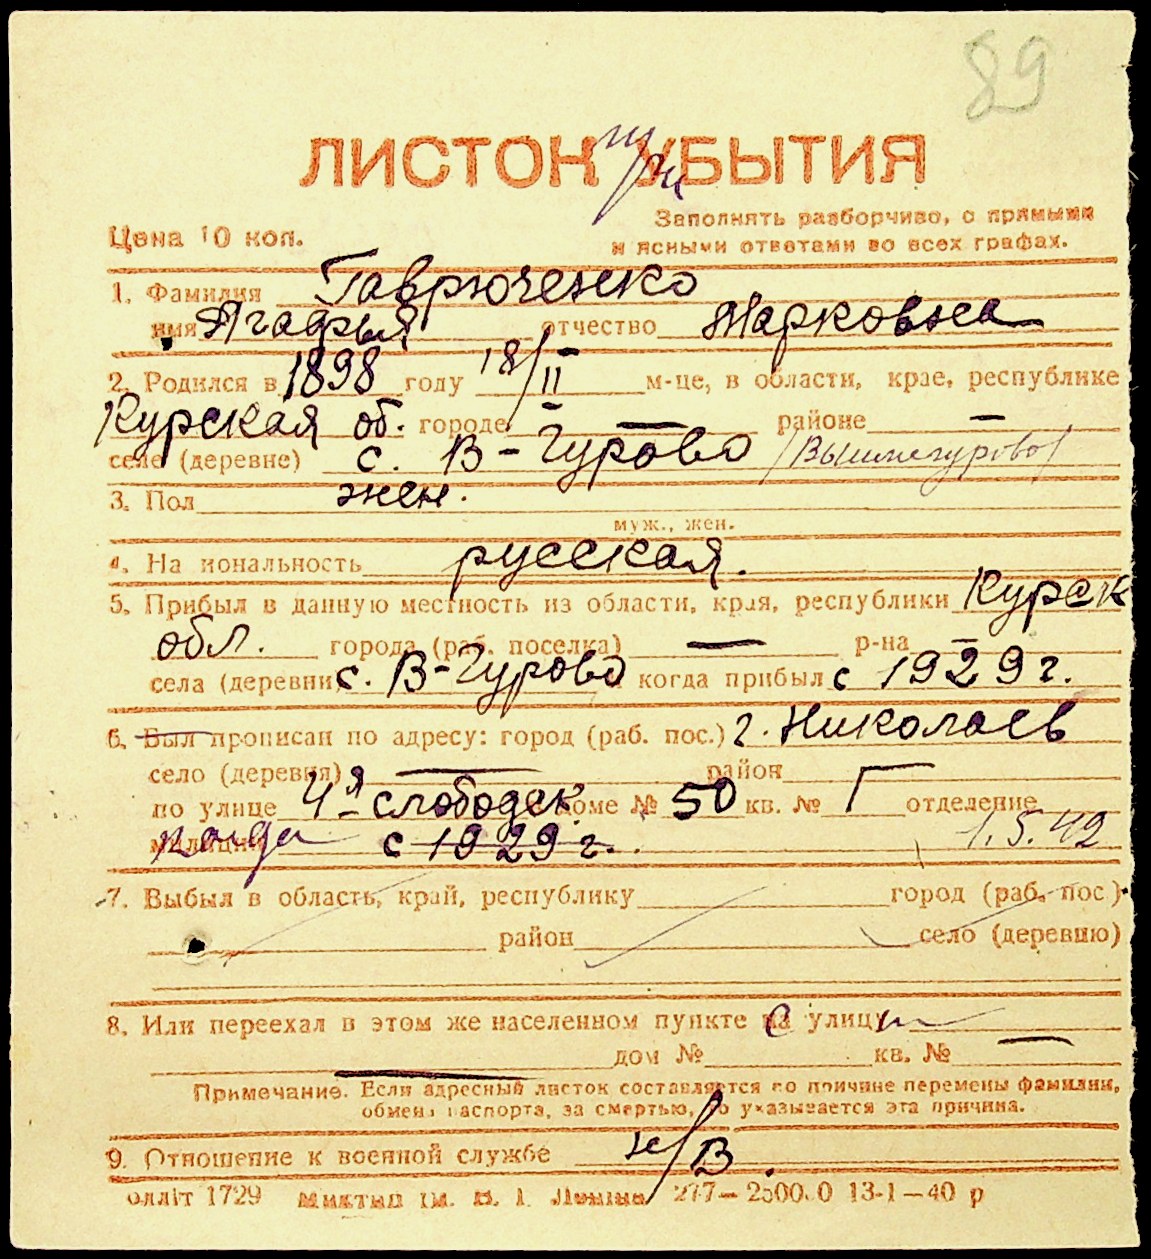 89
ЛИСТОК УБЫТИЯ
Заполнять разборчиво, с прямыми
Цена 10 коп. и ясными ответами во всех графах.
1. Фамилия Гаврюченко
имя Агафья отчество Марковна
2. Родился в 1898 году 18/II м-це, в области, крае, республике
Курская об. городе — районе —
селе (деревне) с. В-Гурово /Вышнегурово/
3. Пол жен.
муж., жен.
4. На иональность русская.
5. Прибыл в данную местность из области, края, республики Курск
обл. города (раб. поселка) — р-на —
села (деревни с. В-Гурово когда прибыл с 1929 г.
6. Был прописан по адресу: город (раб. пос.) г. Николаев
село (деревня) — район —
по улице 4-я слободск. доме № 50 кв. № отделение
милиции с 1929 г. 1.5.42
7. Выбыл в область, край, республику город (раб. пос)
район село (деревню)
8. Или переехал в этом же населенном пункте на улицу
— дом № кв. № —
Примечание. Если адресный листок составляется по причине перемены фамилии,
обмена паспорта, за смертью, то указывается эта причина.
9. Отношение к военной службе н/в.
олліт 1729 277—2500.0 13-1—40 р